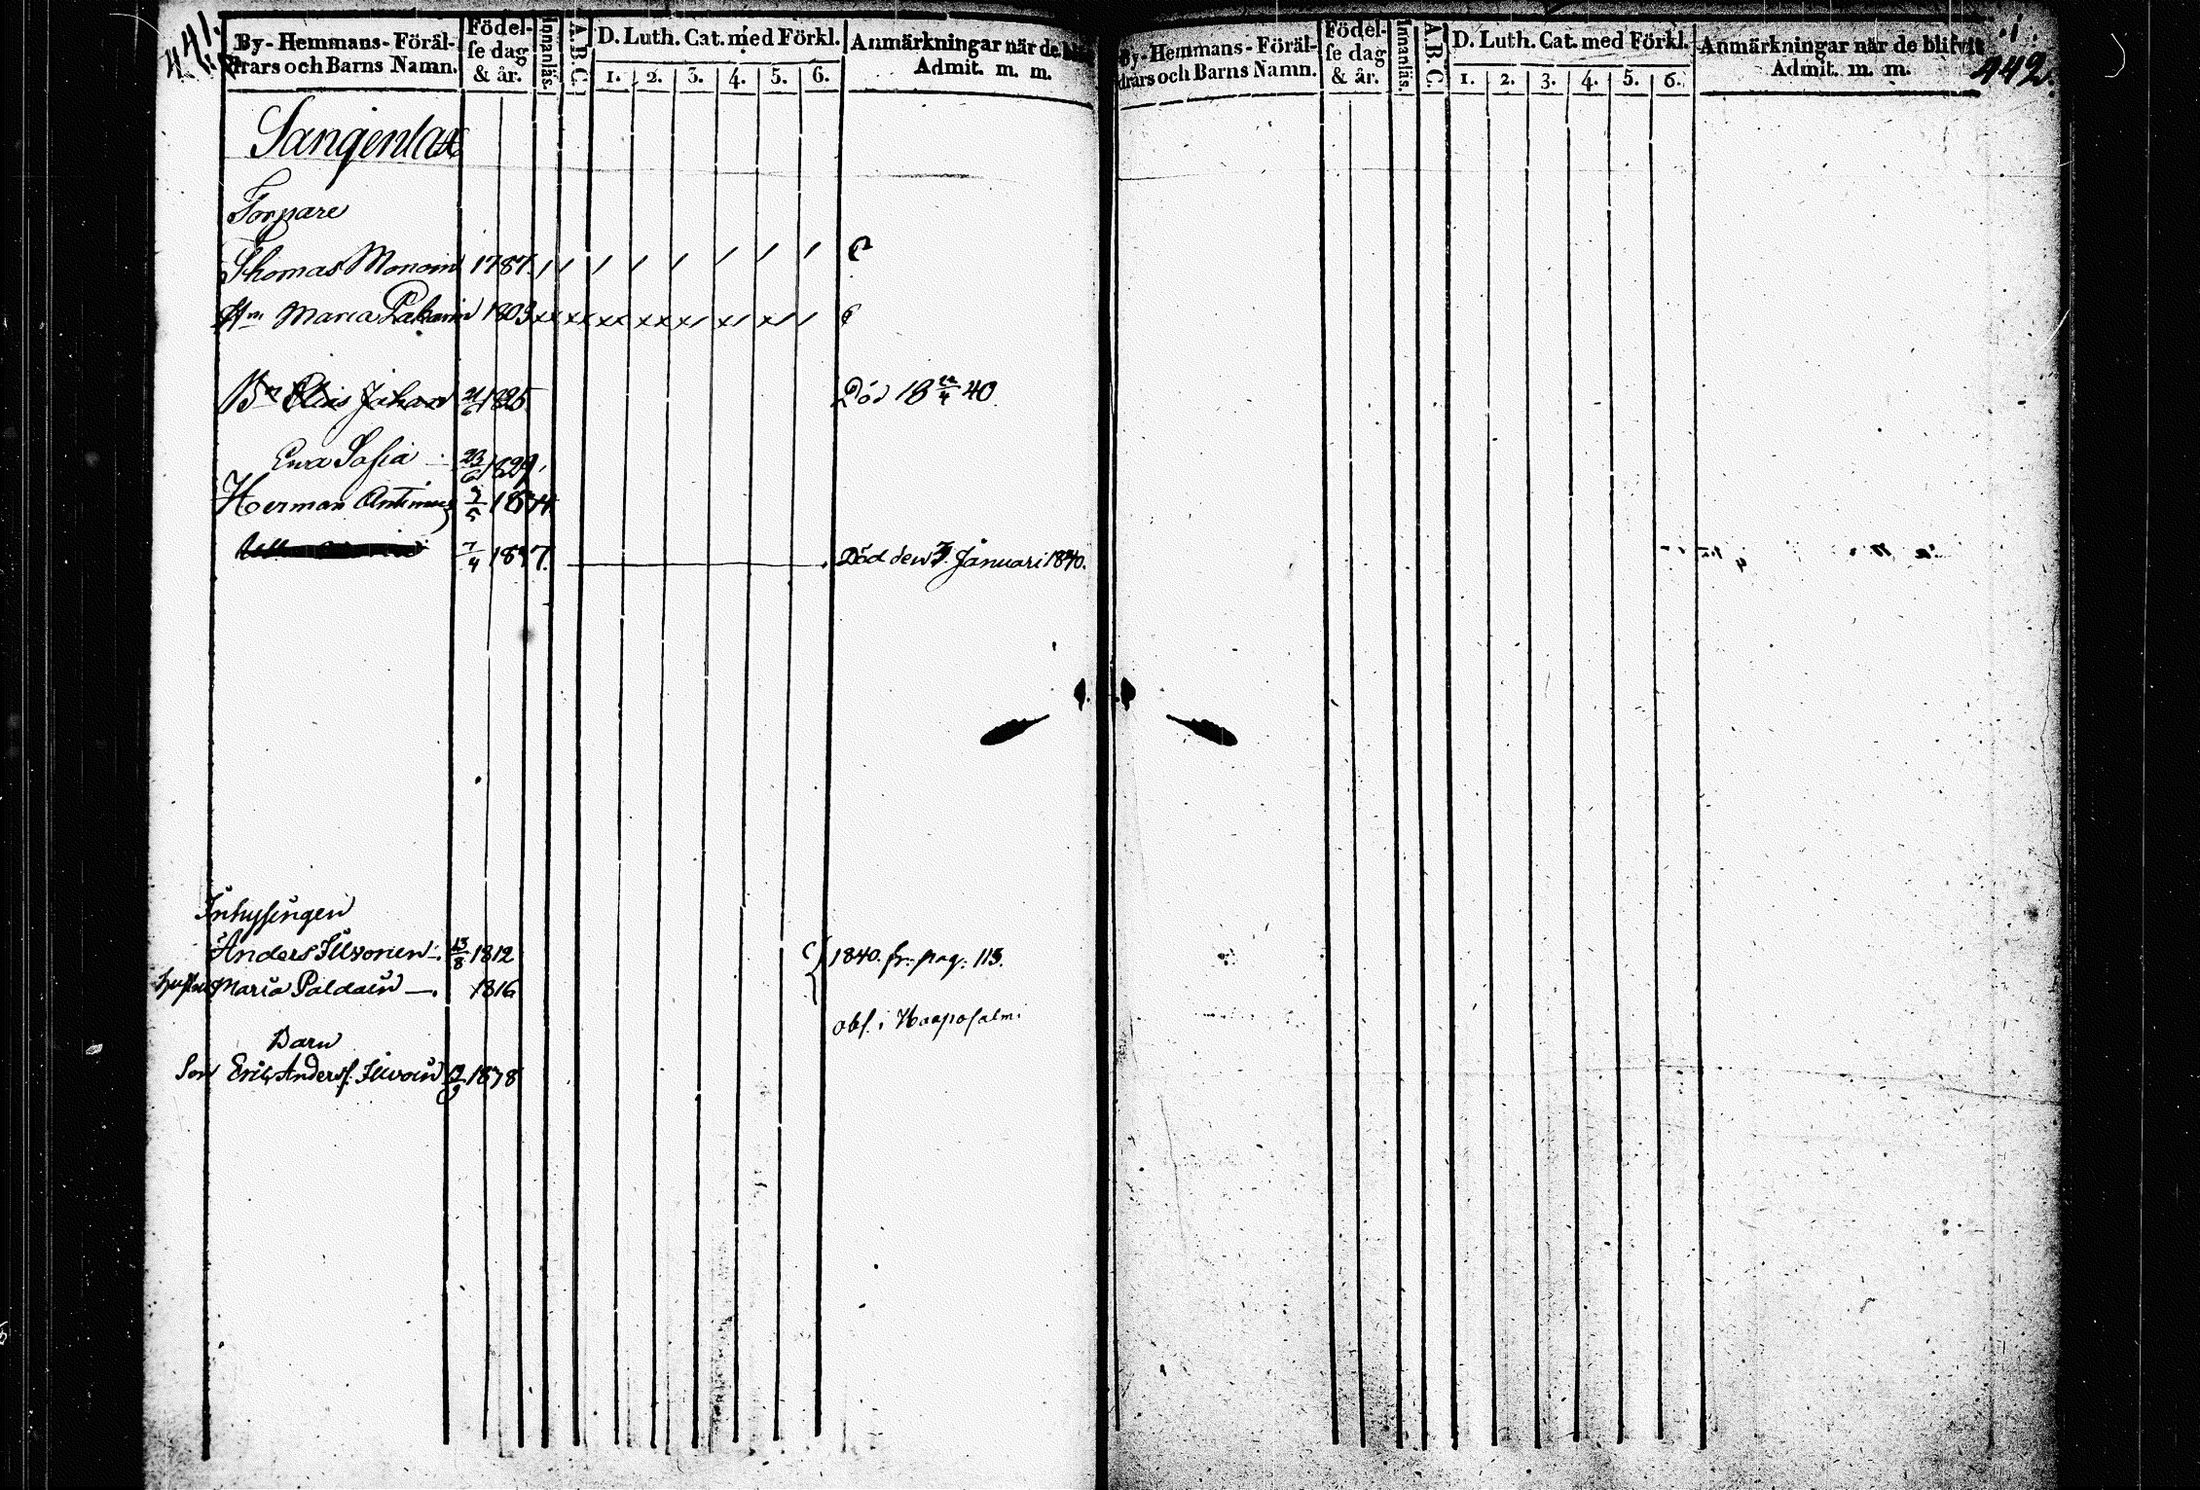 441.
By-Hemmans-Föräl-
drars och Barns Namn.
Födel-
se dag
& år.
Innanläs.
A.B.C.
D. Luth. Cat. med Förkl.
1. 2. 3. 4. 5. 6.
Anmärkningar när de
Admit. m. m.
Sangenlax
Torpare
Thomas Monoin 1787.
Hu Maria Pakarin 1803
Bn Johan 21/6 1825 Död 18 22/4 40.
Ewa Sofia 23/6 1829,
Herman Antinus 1834.
7/4 1837. Död den 7. Januari 1840.
Inhysingen
Anders Ilwonen 13/8 1812 1840. fr. pag. 113.
hustru Maria Paldain 1816
obs. i Haaposalmi
Barn
Son Eric Anders. Ilwoin 1838
442.
By-Hemmans-Föräl-
drars och Barns Namn.
Födel-
se dag
& år.
Innanläs.
A.B.C.
D. Luth. Cat. med Förkl.
1. 2. 3. 4. 5. 6.
Anmärkningar när de blifvit
Admit. m. m.